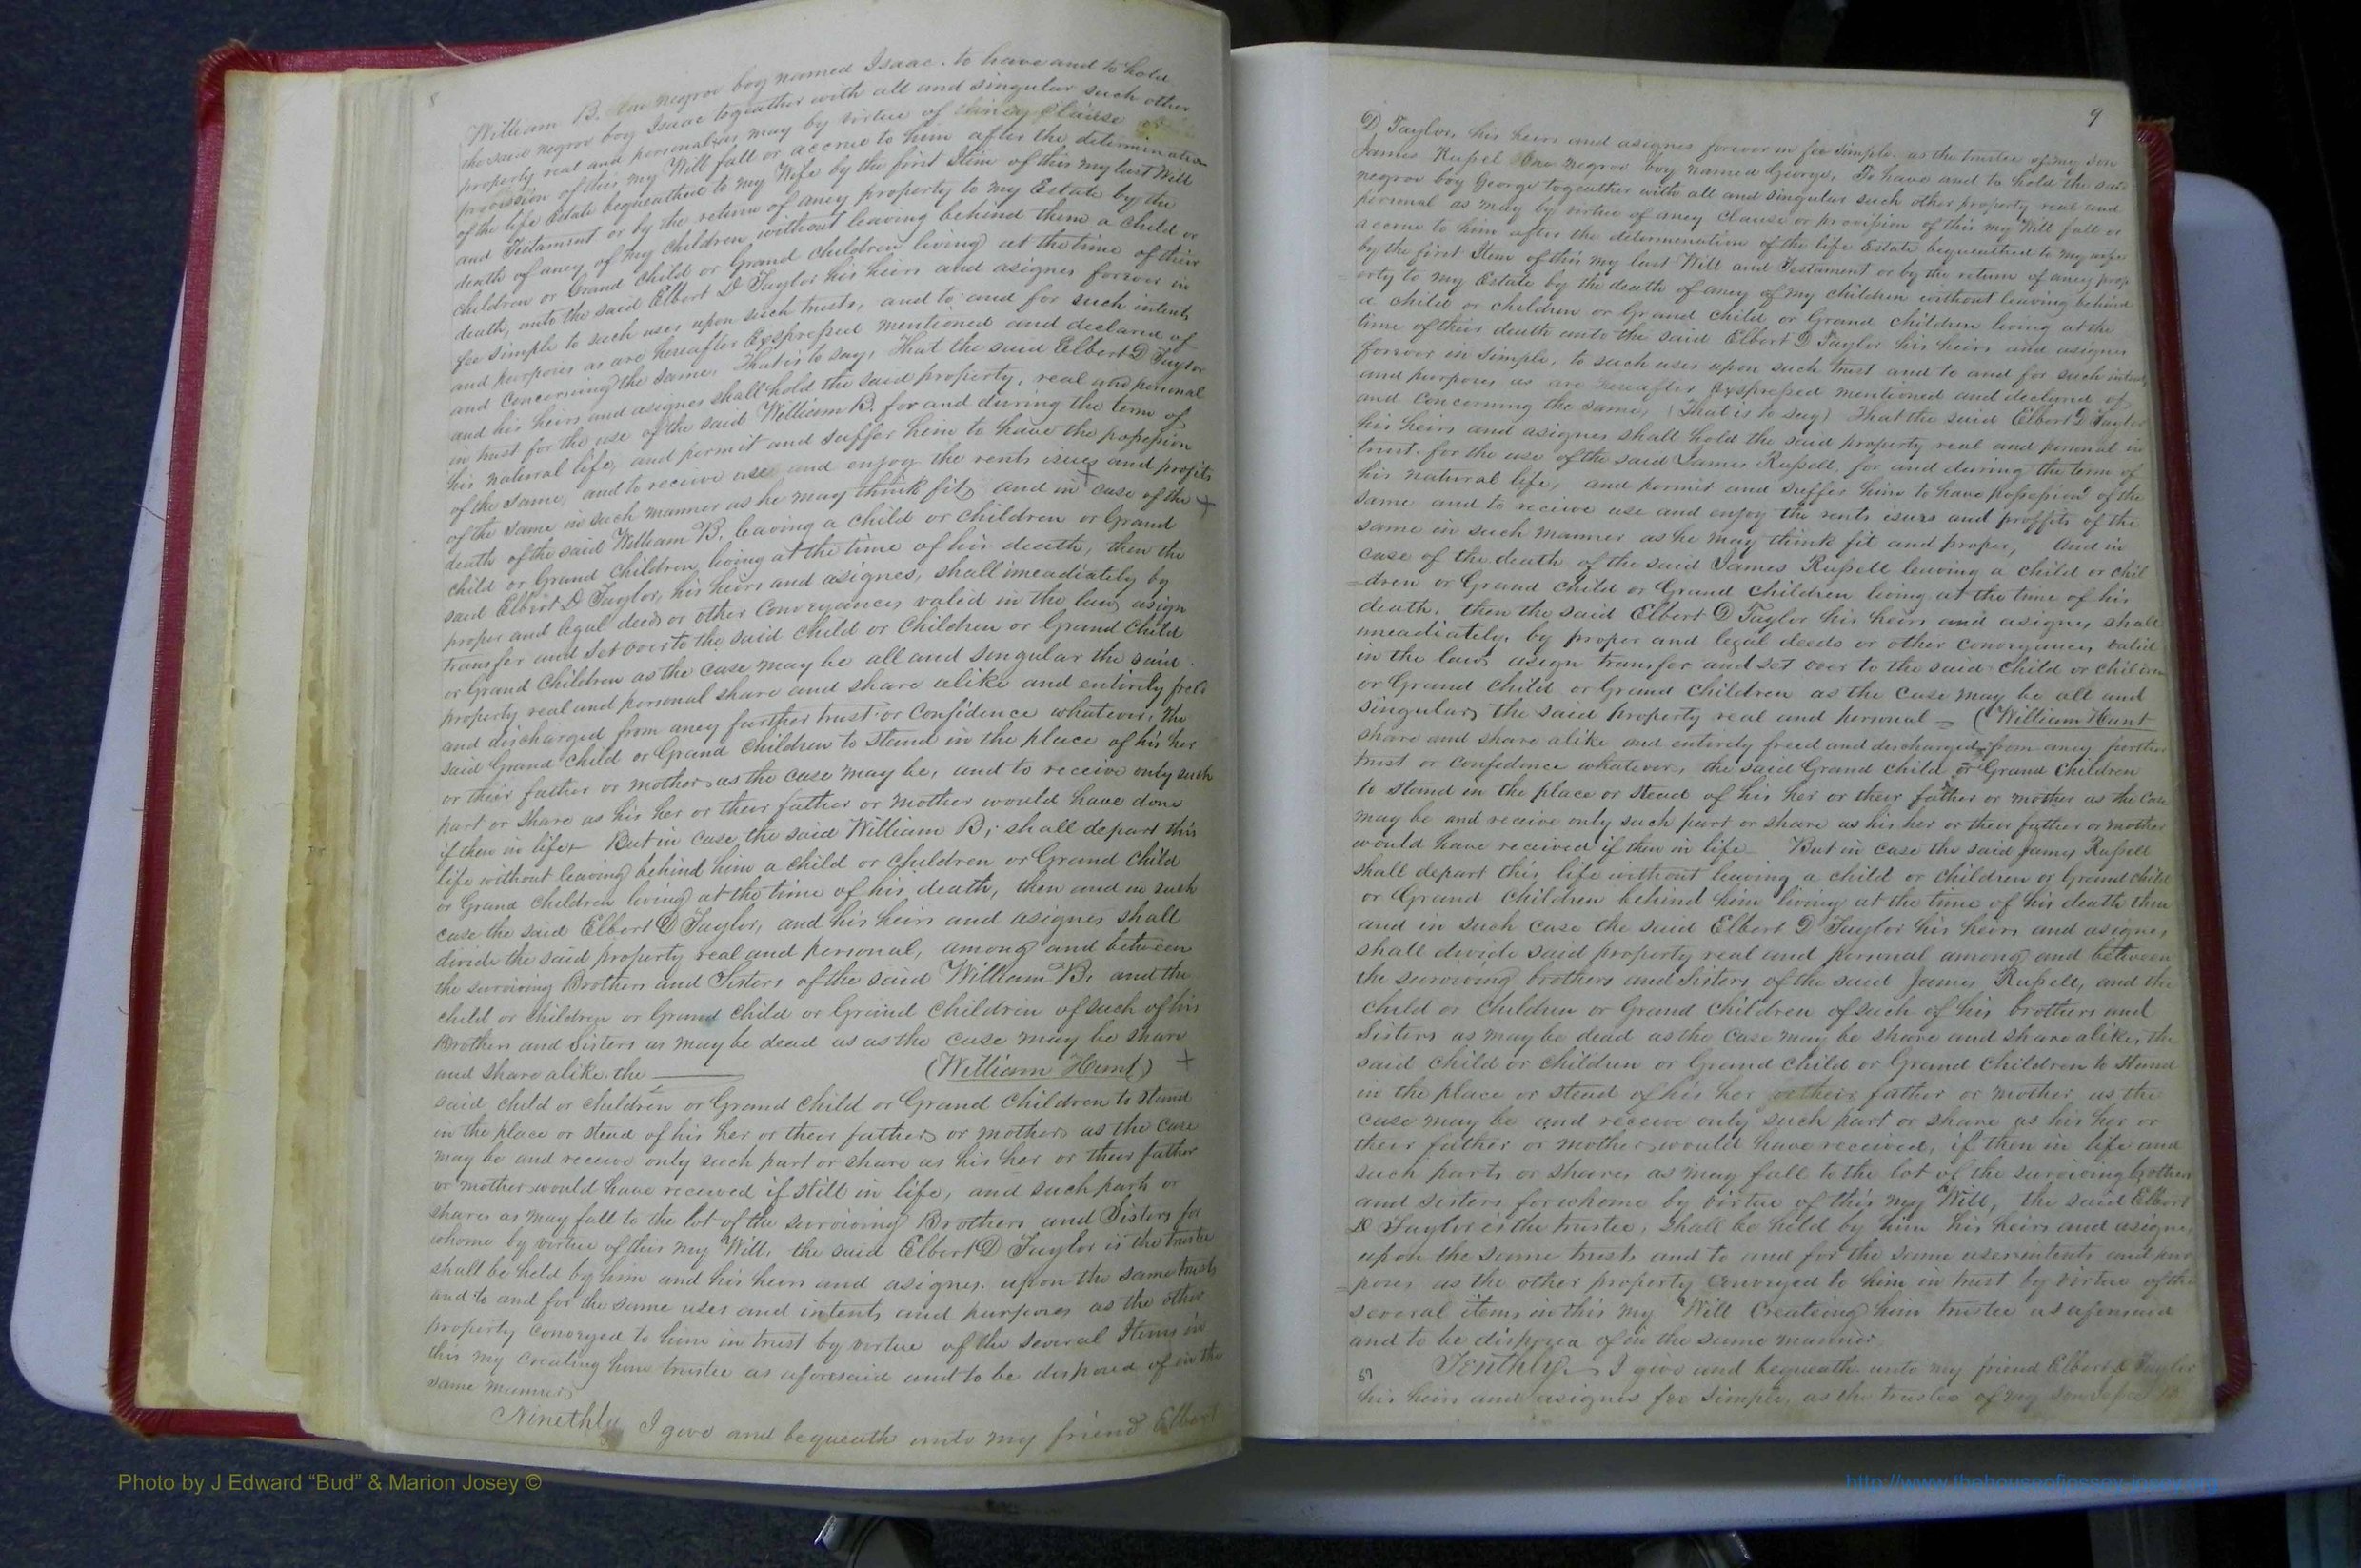 8
William B. One negroe boy named Isaac. to have and to hold
the said negroe boy Isaac togeather with all and singular such other
property real and personal as may by virtue of aney Clause or
provission of this my Will fall or accrue to him after the determination
of the life Estate bequeathed to my Wife by the first Item of this my last Will
and Testament or by the return of aney property to my Estate by the
death of aney of my children without leaving behind them a child or
children or Grand child or Grand children living at the time of their
death, unto the said Elbert D Taylor his heirs and asignes forever in
fee simple to such uses upon such trusts, and to and for such intents
and purposes as are hereafter Expressed mentioned and declared of
and Concerning the same. That is to say, That the said Elbert D Taylor
and his heirs and asignes shall hold the said property, real and personal
in trust for the use of the said William B. for and during the term of
his natural life, and permit and suffer him to have the possession
of the same, and to receive use and enjoy the rents isues and profits
of the same in such manner as he may think fit, and in case of the
death of the said William B. leaving a child or children or Grand
child or Grand children living at the time of his death, then the
said Elbert D Taylor, his heirs and asignes, shall imeadiately by
proper and legal deeds or other Conveyances valid in the law, asign
transfer and set over to the said child or Children or Grand Child
or Grand Children as the case may be all and singular the said
property real and personal share and share alike and entirely freed
and discharged from aney further trust or Confidence whatever, the
said Grand child or Grand children to stand in the place of his her
or their father or mother as the case may be, and to receive only such
part or share as his her or their father or mother would have done
if then in life. But in case the said William B; shall depart this
life without leaving behind him a child or children or Grand child
or Grand children living at the time of his death, then and in such
case the said Elbert D Taylor, and his heirs and asignes shall
divide the said property real and personal, among and between
the surviving Brothers and Sisters of the said William B; and the
child or children or Grand child or Grand children of such of his
Brothers and Sisters as may be dead as as the case may be share
and share alike. the (William Hunt)
said child or children or Grand child or Grand children to stand
in the place or stead of his her or their father or mother as the case
may be and receive only such part or share as his her or their father
or mother would have received if still in life, and such parts or
shares as may fall to the lot of the surviving Brothers and Sisters for
whome by virtue of this my Will, the said Elbert D Taylor is the trustee
shall be held by him and his heirs and asignes. upon the same trusts
and to and for the same uses and intents and purposes as the other
property conveyed to him in trust by virtue of the several Items in
this my creating him trustee as aforesaid and to be disposed of in the
same manner
Ninethly I give and bequeath unto my friend Elbert
9
D, Taylor, his heirs and asignes forever in fee simple. as the trustee of my son
James Russel One negroe boy named George, To have and to hold the said
negroe boy George togeather with all and singular such other property real and
personal as may by virtue of aney Clause or provision of this my Will fall or
accrue to him after the determenation of the life Estate bequeathed to my wife
by the first Item of this my last Will and Testament or by the return of aney prop
erty to my Estate by the death of aney of my children without leaving behind
a child or children or Grand child or Grand children living at the
time of their death unto the said Elbert D Taylor his heirs and asignes
forever in simple. to such uses upon such trust and to and for such intents
and purposes as are hereafter Expressed mentioned and declared of
and Concerning the same, (That is to say) That the said Elbert D Taylor
his heirs and asignes shall hold the said property real and personal in
trust. for the use of the said James Russell, for and during the term of
his natural life, and permit and suffer him to have possession of the
same and to receive use and enjoy the rents isues and proffits of the
same in such manner as he may think fit and proper, And in
case of the death of the said James Russell leaving a child or chil
dren or Grand child or Grand children living at the time of his
death, then the said Elbert D Taylor his heirs and asignes shall
imeadiately, by proper and legal deeds or other conveyances valid
in the law, asign transfer and set over to the said Child or children
or Grand child or Grand children as the case may be all and
singular, the said property real and personal (William Hunt
share and share alike and entirely freed and discharged from aney further
trust or Confidence whatever, the said Grand child or Grand children
to stand in the place or stead of his her or their father or mother as the case
may be and receive only such part or share as his her or their father or mother
would have received if then in life But in case the said James Russell
shall depart this life without leaving a child or children or Grand child
or Grand children behind him living at the time of his death then
and in such case the said Elbert D Taylor his heirs and asignes,
shall divide said property real and personal among and between
the surviving brothers and Sisters of the said James Russell, and the
child or children or Grand children of such of his brothers and
Sisters as may be dead as the case may be share and share alike, the
said child or children or Grand child or Grand children to stand
in the place or stead of his her or their father or mother as the
case may be and receive only such part or share as his her or
their father or mother would have received, if then in life and
such parts or shares as may fall to the lot of the surviving brothers
and sisters for whome by virtue of this my Will, the said Elbert
D Taylor is the trustee, shall be held by him his heirs and asignes,
upon the same trusts and to and for the same uses intents and pur
poses as the other property conveyed to him in trust by virtue of the
several items in this my Will Creating him trustee as aforesaid
and to be disposed of in the same manner
Tenthly I give and bequeath unto my friend Elbert D Taylor
57
his heirs and asignes fee simple, as the trustee of my son
Photo by J Edward “Bud” & Marion Josey ©
http://www.thehouseofjossey-josey.org